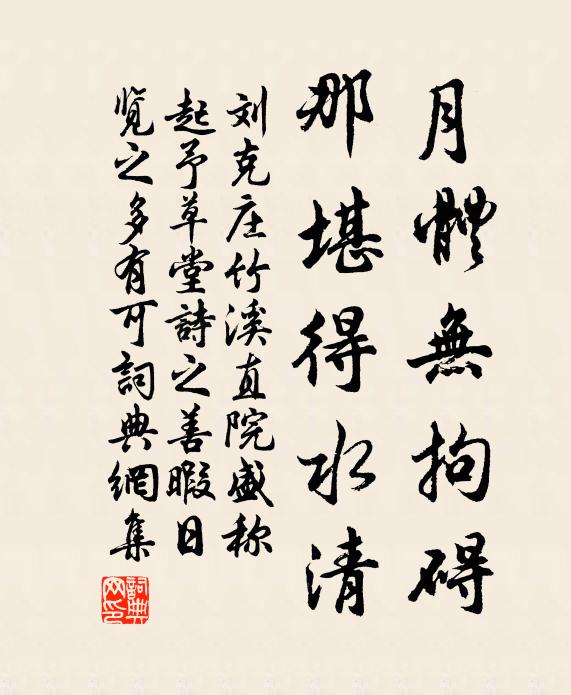 月體無拘碍
那堪得水清
刘克庄竹溪直院盛称
起予草堂詩之善暇日
览之多有可詞典網集
詞典網印